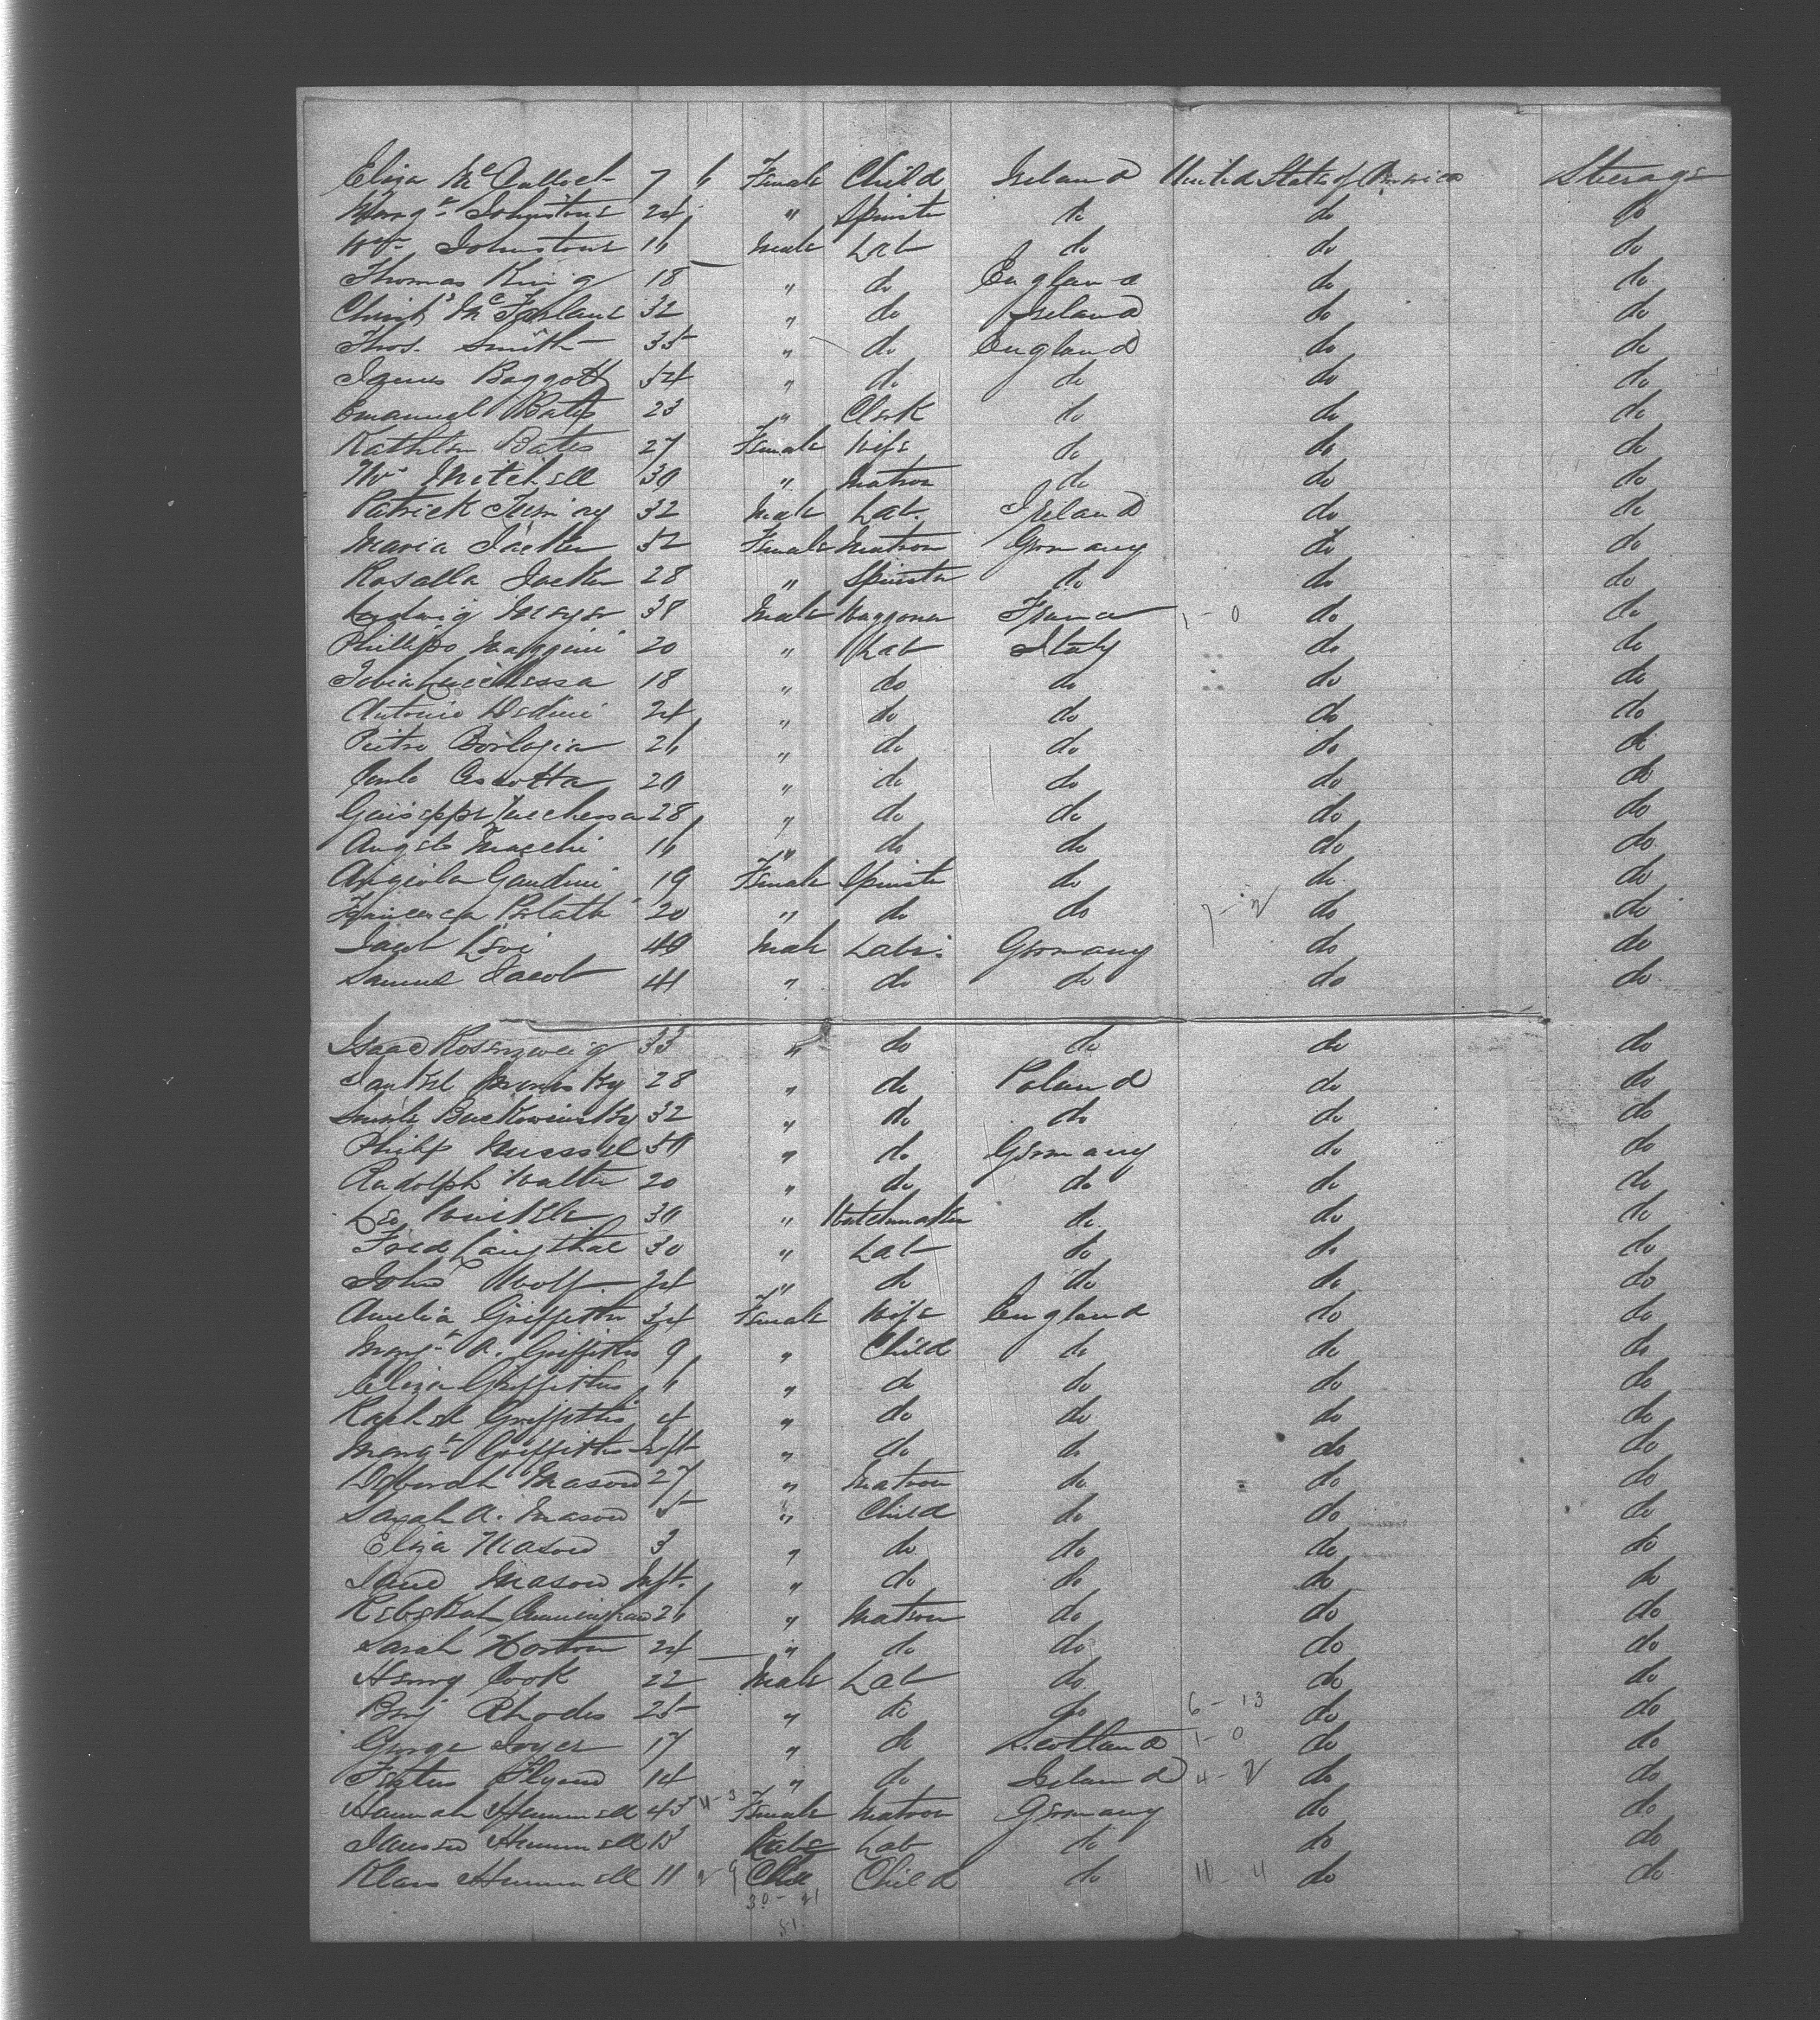 Eliza McCulloch 7 6 Female Child Ireland United States of America Steerage
Margt Johnstone 24 " Spinster do do do
Wm Johnstone 16 Male Lab do do do
Thomas King 18 " do England do do
Christr McFarlane 32 " do Ireland do do
Thos. Smith 35 " do England do do
James Baggott 54 " do do do do
Emanuel Bates 23 " Clerk do do do
Kathleen Bates 27 Female Wife do do do
Mitchell 30 " Matron do do do
Patrick 32 Male Lab. Ireland do do
Maria Jacker 52 Female Matron Germany do do
Rosalla Jacker 28 " Spinster do do do
Ludwig Meyer 38 Male Waggoner France 1 - 0 do do
Phillipo 20 " Lab Italy do do
18 " do do do do
Antonio Dedini 24 " do do do do
Pietro 26 " do do do do
20 " do do do do
Guiseppe Luchessa 28 " do do do do
Angelo Macchi 16 " do do do do
Angiola Gaudini 19 Female Spinster do do do
Francesca 20 " do do 7 - 2 do do
Jacob Levi 40 Male Labr. Germany do do
Samuel Jacob 41 " do do do do
Isaac Rosenzweig 33 " do do do do
28 " do Poland do do
32 " do do do do
Philip 50 " do Germany do do
Rudolph Walter 20 " do do do do
30 " Watchmaker do do do
Fred Langthal 30 " Lab do do do
John Wolf. 24 " do do do do
Amelia Griffiths 34 Female Wife England do do
Margt A. Griffiths 9 " Child do do do
Eliza Griffiths 6 " do do do do
Rachel Griffiths 4 " do do do do
Margt Griffiths Inft " do do do do
Deborah Mason 27 " Matron do do do
Sarah A. Mason 5 " Child do do do
Eliza Mason 3 " do do do do
Jane Mason Inft. " do do do do
Rebekah Cunningham 26 " Matron do do do
Sarah Horton 24 " do do do do
Henry Cook 22 Male Lab do do do
Benj Rhodes 25 " do do 6 - 13 do do
George 17 " do Scotland 1 - 0 do do
Festus Flynn 14 " do Ireland 4 - 2 do do
Hannah Hummell 45 11 - 3 Female Matron Germany do do
Hummell 13 Male Lab do do do
Klaus Hummell 11 2 9 Child do 11 4 do do
30 - 21
51